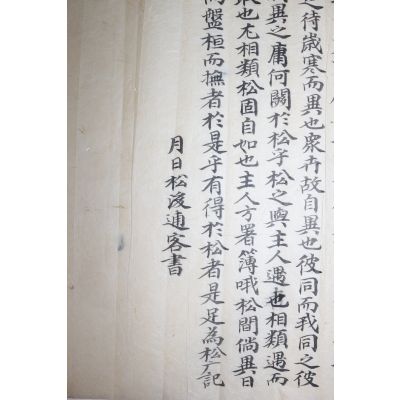 待歲寒而異也衆卉故自異也彼同而我同之彼
異之庸何關於松乎松之與主人遇也相類遇而
也尤相類松固自如也主人方署簿哦松間倘異日
盤桓而撫者於是乎有得於松者是足為松广記
月日松渡逋客書